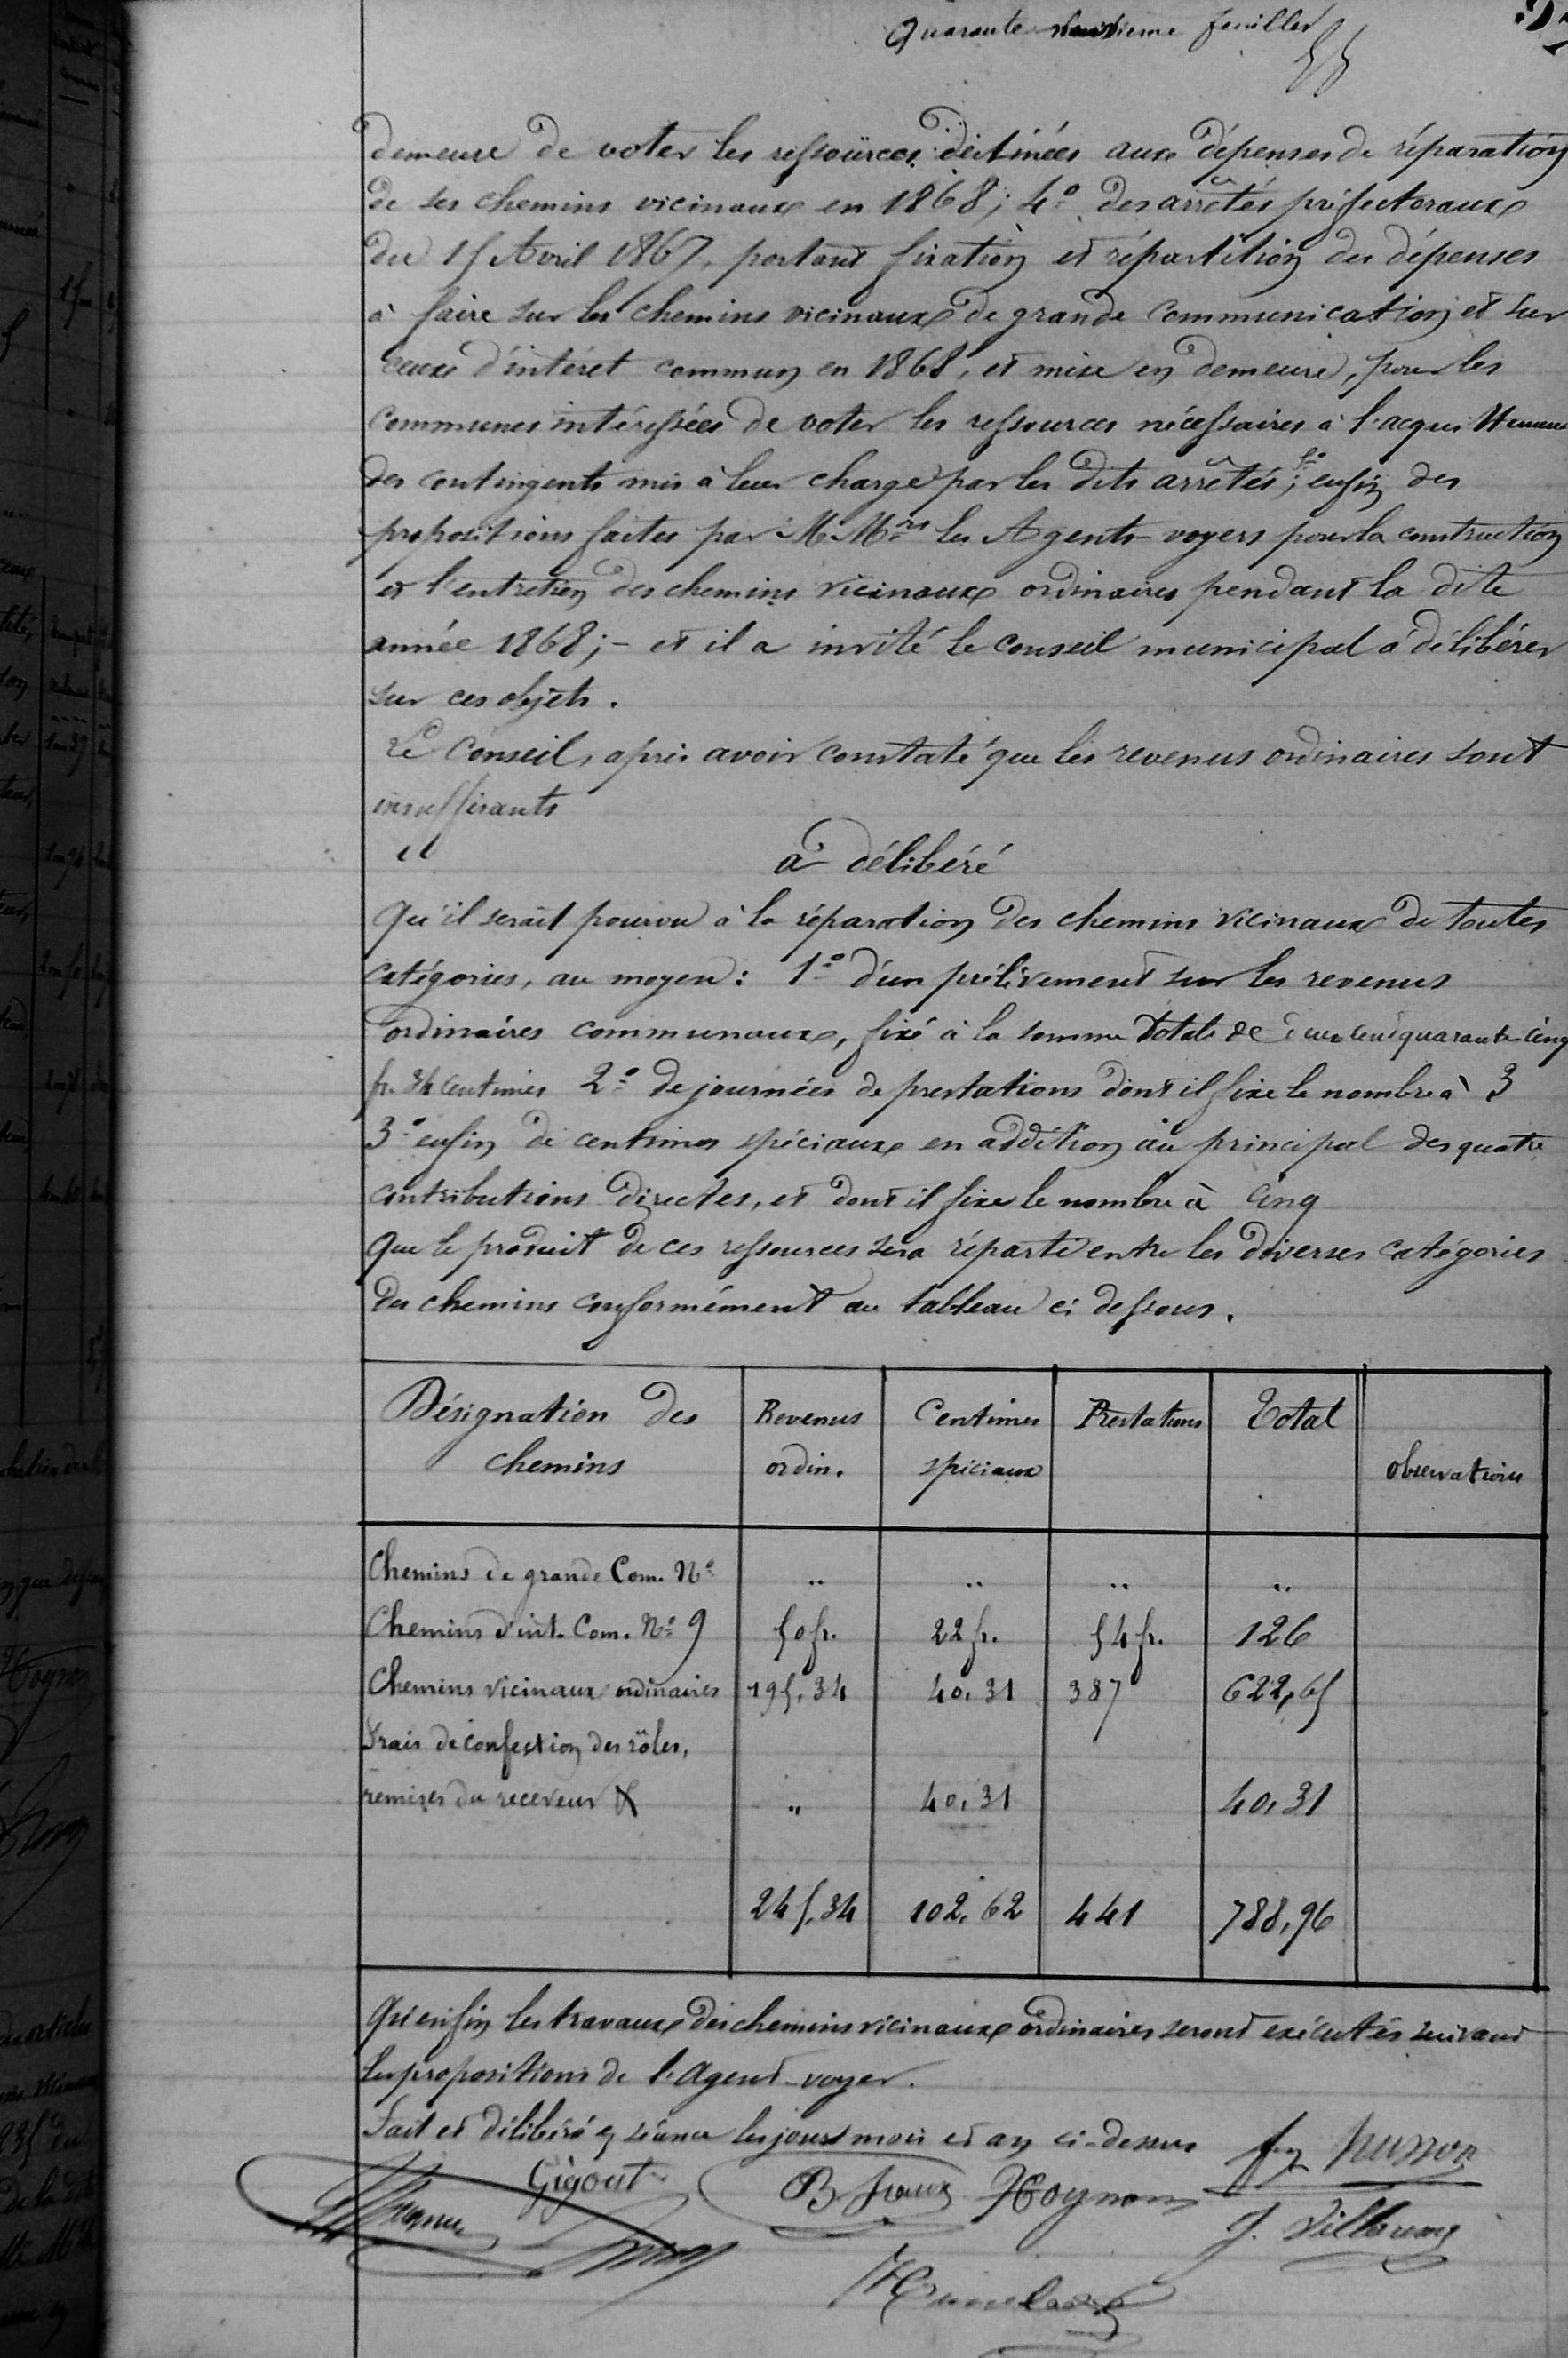 Quarante feuillet
demeure de voter les ressources destinées aux dépenses de réparation
de ses chemins vicinaux en 1868; 4º des arrêtés préfectoraux
du 15 Avril 1867, portant fixation et répartition des dépenses
à faire sur les chemins vicinaux de grande communication et sur
ceux d'intéret commun en 1868, et mise en demeure, pour les
communes intéressées de voter les ressources nécessaires à l'acquittement
des contingents mis à leur charge par les dits arrêtés; 5º enfin des
propositions faites par M.Mrs les Agents-voyers pour la construction
et l'entretien des chemins vicinaux ordinaires pendant la dite
année 1868; - et il a invité le Conseil municipal à délibérer
sur ces objets.
Le Conseil, après avoir constaté que les revenus ordinaires sont
insuffisants
a délibéré
Qu'il serait pourvu à la réparation des chemins vicinaux de toutes
catégories, au moyen: 1º d'un prélèvement sur les revenus
ordinaires communaux, fixé à la somme totale de deux cent quarante cinq
fr. 34 centimes 2º de journées de prestations dont il fixe le nombre à 3
3º enfin de centimes spéciaux en addition au principal des quatre
contributions directes, et dont il fixe le nombre à cinq
Que le produit de ces ressources sera réparti entre les diverses catégories
des chemins conformément au tableau ci dessous.
Désignation des chemins Revenus ordin. Centimes spéciaux Prestations Total observations
Chemins de grande Com. Nº " " " "
Chemins d'int. Com. Nº 9 50 fr. 22 fr. 54 fr. 126
Chemins vicinaux ordinaires 195,34 40,31 387 622,65
Frais de confection des rôles,
remises du receveur & " 40,31 40,31
245,34 102,62 441 788,96
Qu'enfin les travaux des chemins vicinaux ordinaires seront exécutés suivant
les propositions de l'Agent-voyer.
Fait et délibéré en séance les jours mois et an ci-dessus
husson
Gigout Hoynon
J. Villaume